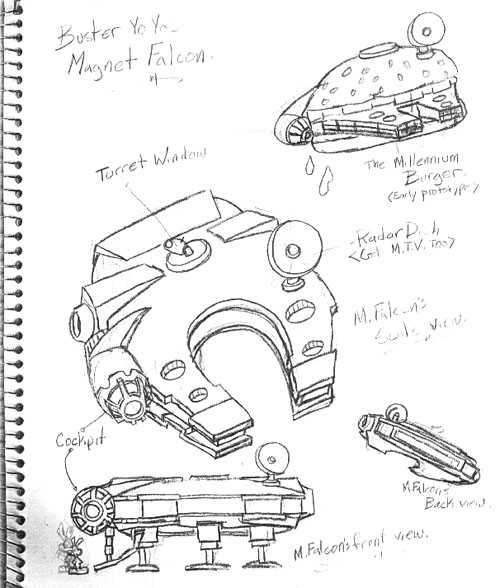 Buster Yo Yo
Magnet Falcon.
Turret Window
The Millennium
Burger
<Early prototype>
Radar Dish
<Got M.T.V. Too>
M. Falcon's
view.
Cockpit
M. Falcon's
Back view.
M. Falcon's front view.